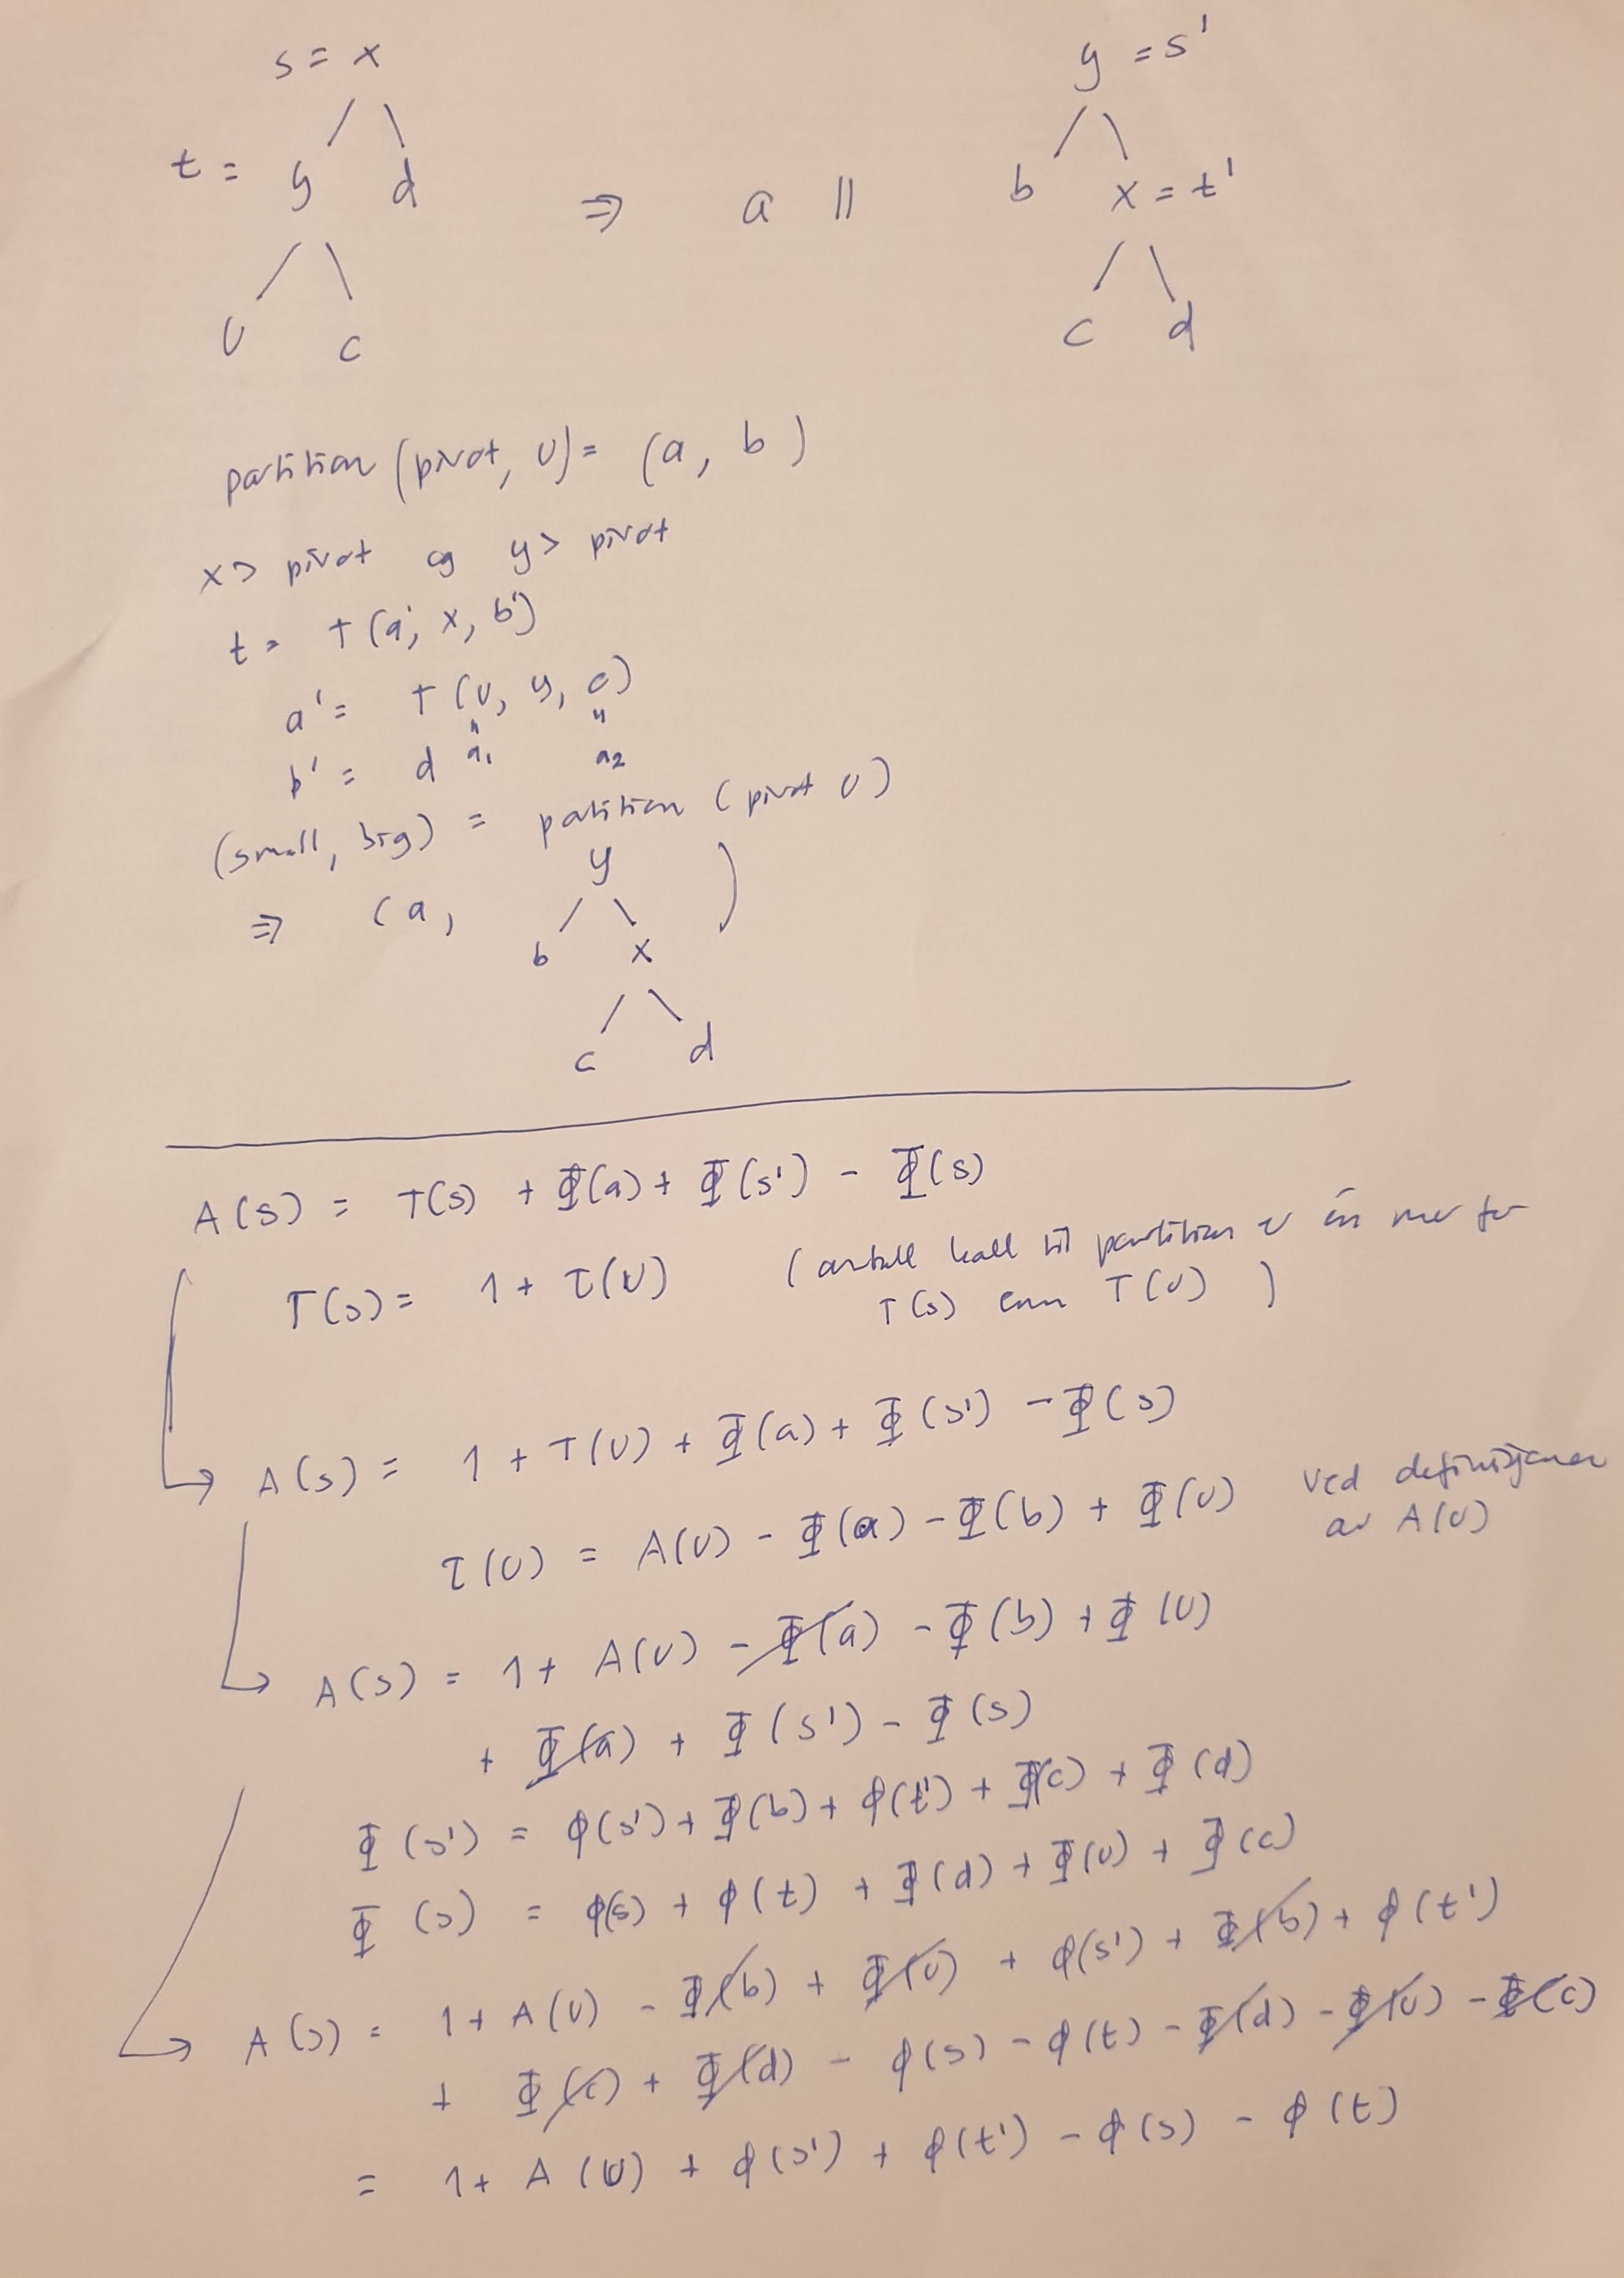 s = x
y = s'
t = y d
⇒ a ||
b x = t'
U c
c d
partition (pivot, U) = (a, b)
x > pivot og y > pivot
t = T(a', x, b')
a' = T(U, y, c)
b' = d a₁ a₂
(small, big) = partition (pivot U)
y
⇒ (a, )
b x
c d
A(s) = T(s) + Φ(a) + Φ(s') - Φ(s)
T(s) = 1 + T(U) (antall kall til partition er én mer for
T(s) enn T(U) )
A(s) = 1 + T(U) + Φ(a) + Φ(s') - Φ(s)
T(U) = A(U) - Φ(a) - Φ(b) + Φ(U) ved definisjonen
av A(U)
A(s) = 1 + A(U) - Φ(a) - Φ(b) + Φ(U)
+ Φ(a) + Φ(s') - Φ(s)
Φ(s') = φ(s') + Φ(b) + φ(t') + Φ(c) + Φ(d)
Φ(s) = φ(s) + φ(t) + Φ(d) + Φ(U) + Φ(c)
A(s) = 1 + A(U) - Φ(b) + Φ(U) + φ(s') + Φ(b) + φ(t')
+ Φ(c) + Φ(d) - φ(s) - φ(t) - Φ(d) - Φ(U) - Φ(c)
= 1 + A(U) + φ(s') + φ(t') - φ(s) - φ(t)